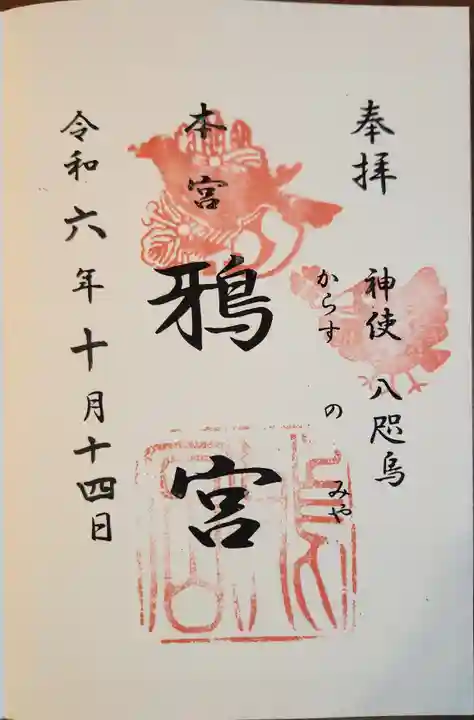 奉拝
神使 八咫烏
からす の みや
本宮
鴉宮
令和六年十月十四日